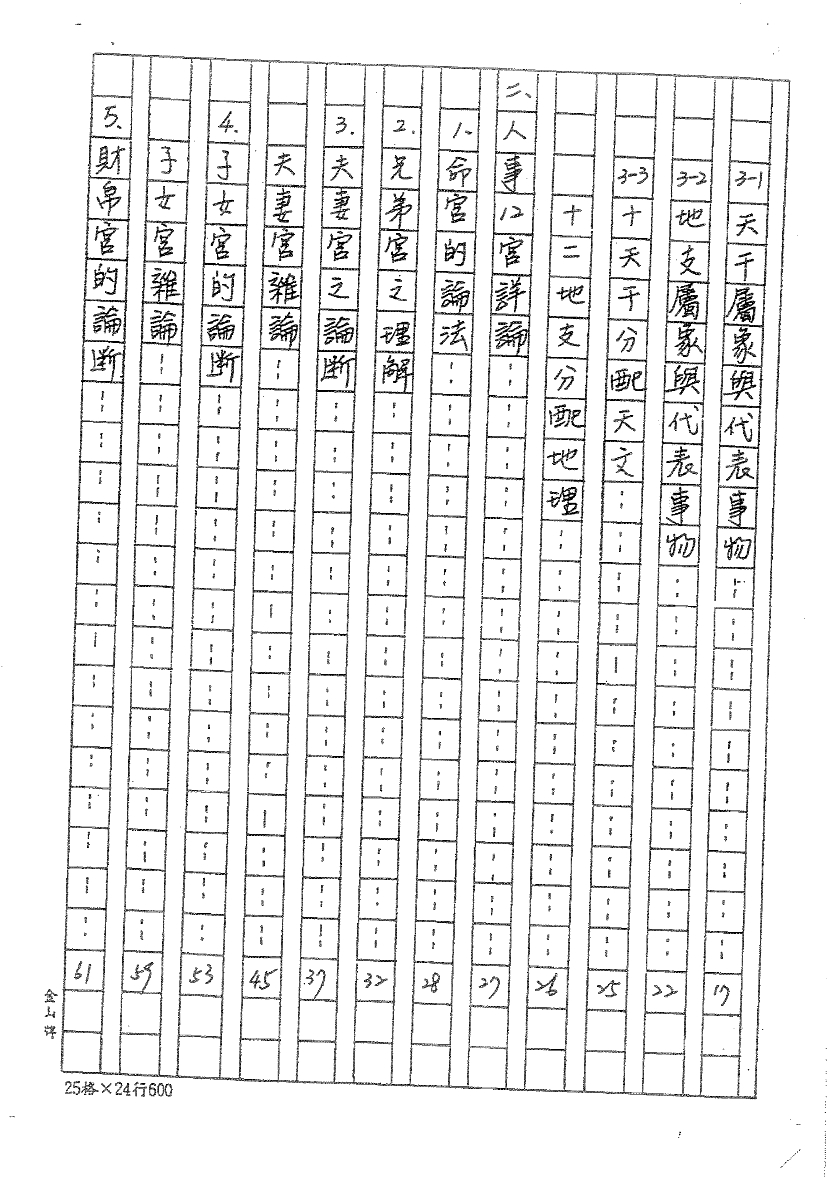 3-1天干屬象與代表事物……………………17
3-2地支屬象與代表事物……………………22
3-3十天干分配天文……………………25
十二地支分配地理……………………26
二、人事12宮詳論……………………27
1.命宮的論法……………………28
2.兄弟宮之理解……………………32
3.夫妻宮之論斷……………………37
夫妻宮雜論……………………45
4.子女宮的論斷……………………53
子女宮雜論……………………59
5.財帛宮的論斷……………………61
金山牌
25格×24行600